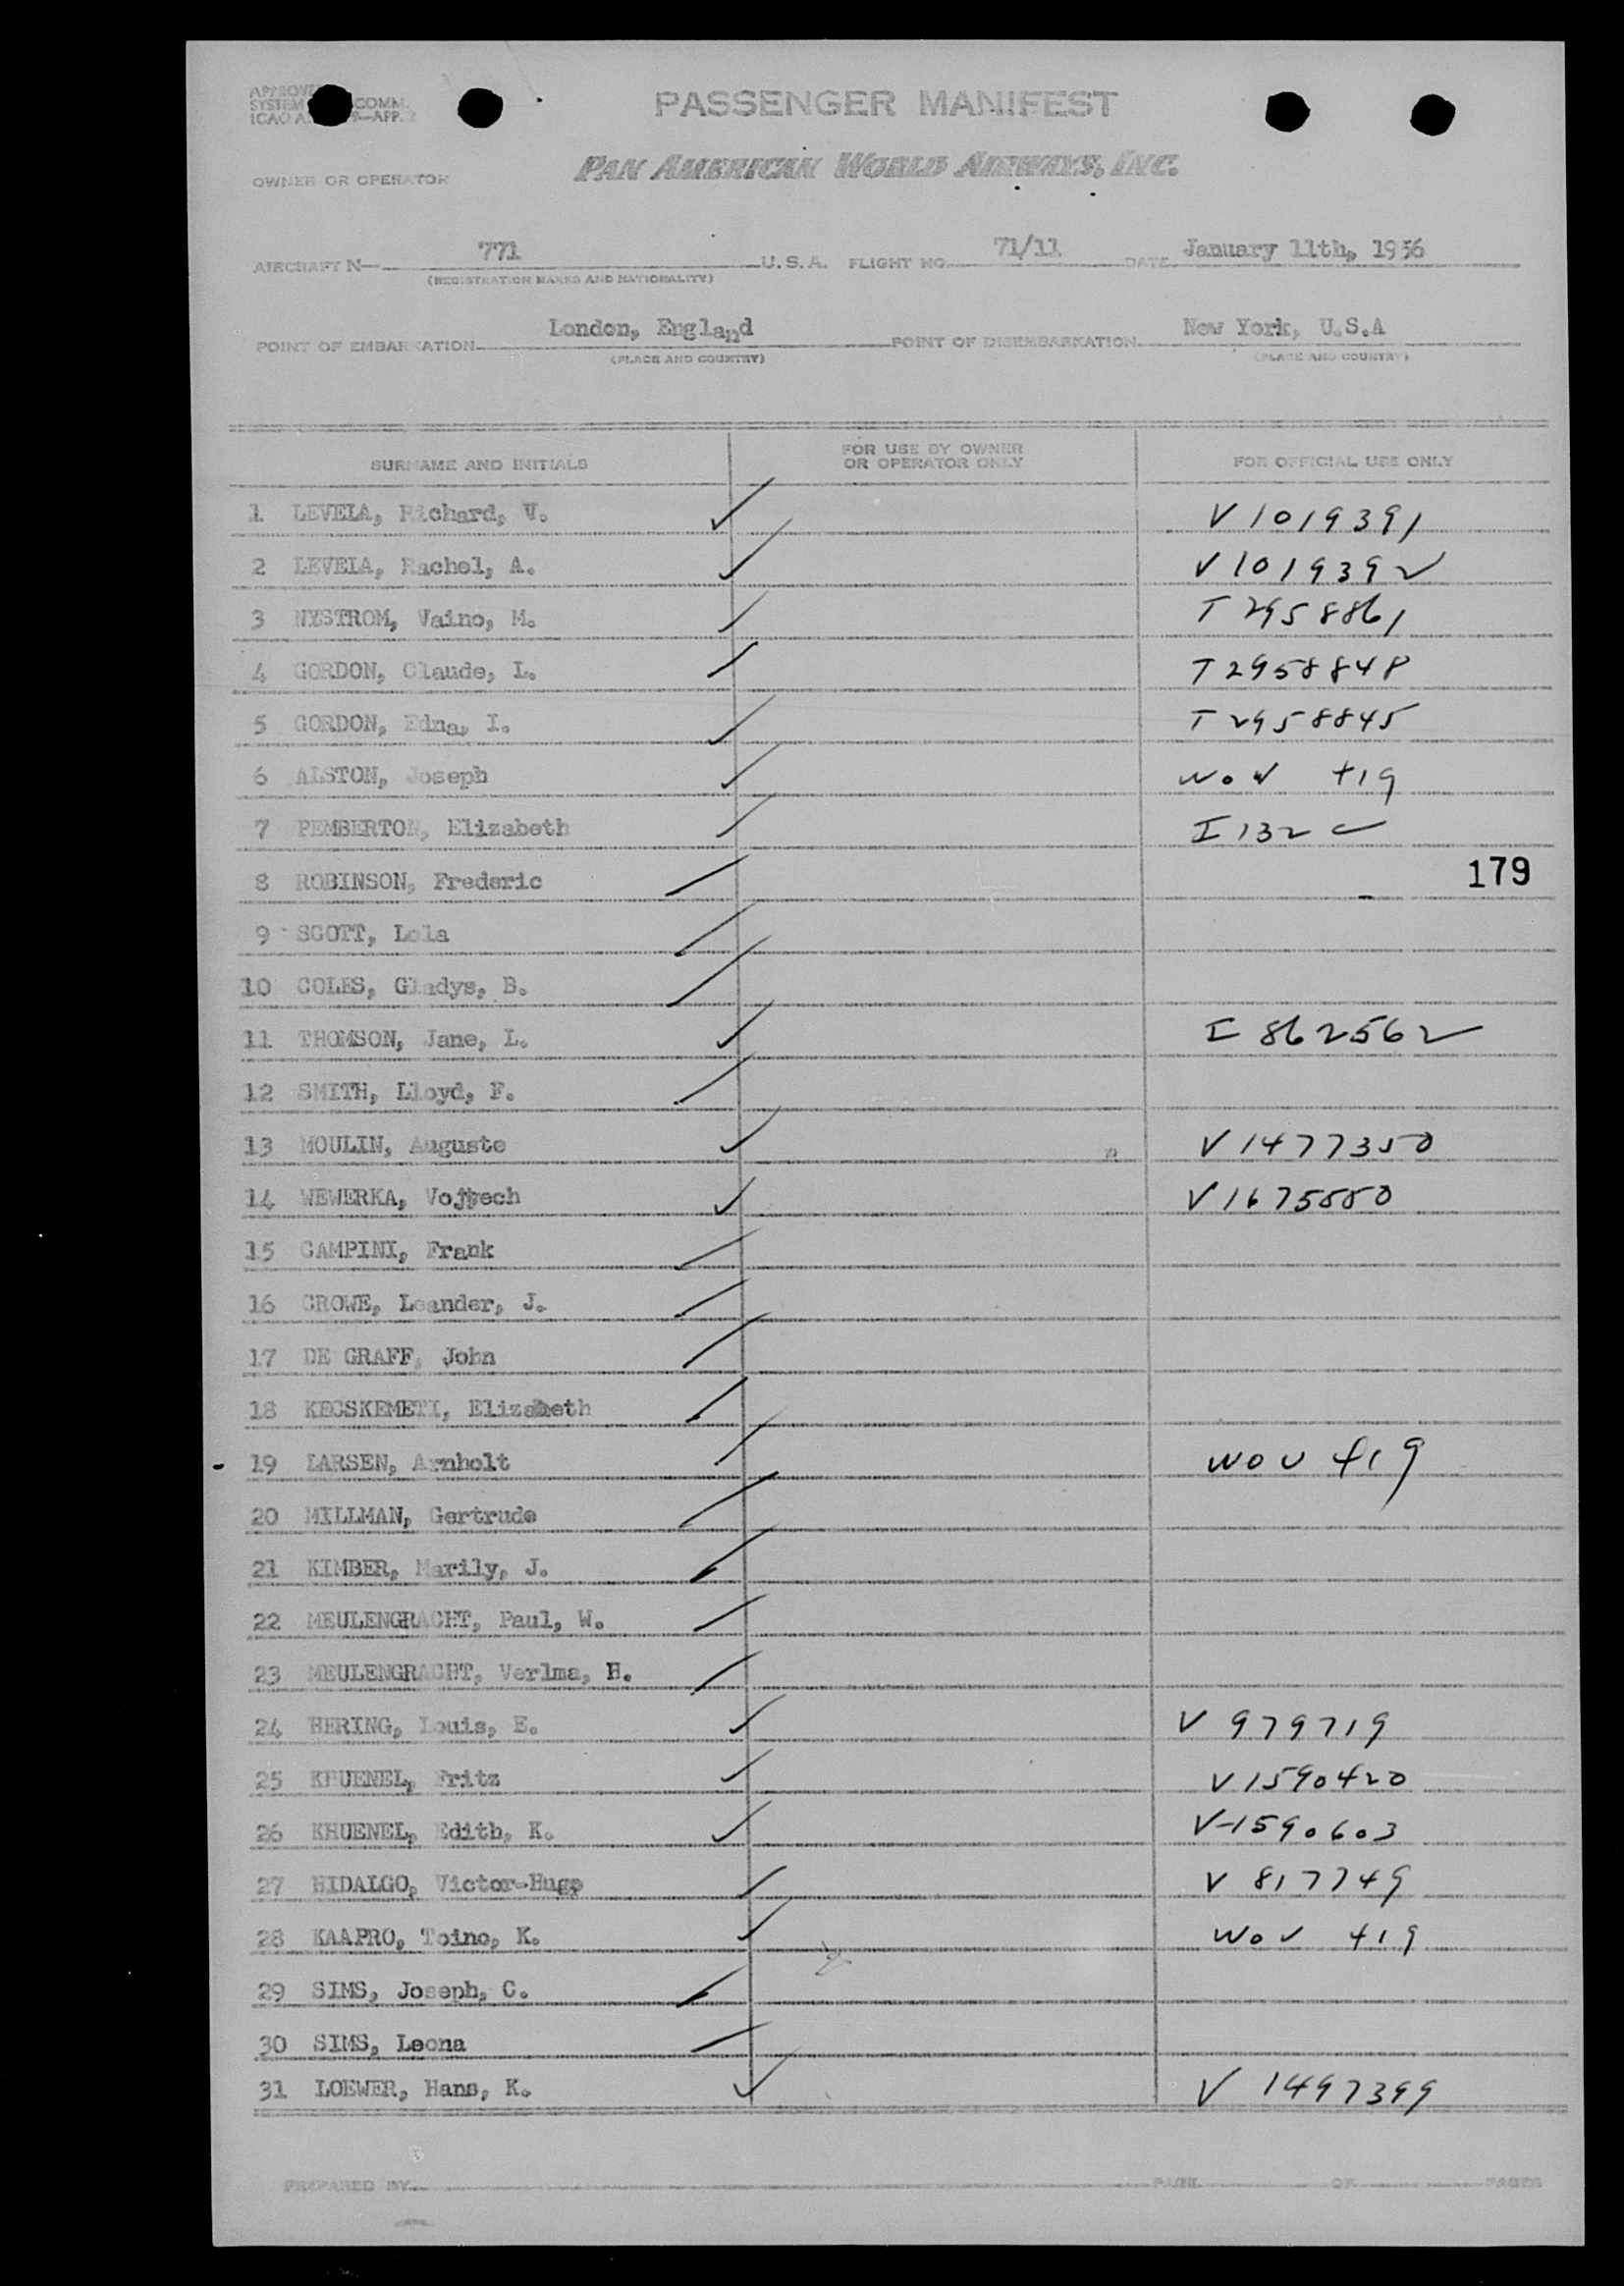 APPROVE
SYSTEM COMM.
ICAO A. 9—APP. 2
PASSENGER MANIFEST
OWNER OR OPERATOR PAN AMERICAN WORLD AIRWAYS, INC.
AIRCRAFT N— 771 U.S.A. FLIGHT NO. 71/11 DATE January 11th, 1956
(REGISTRATION MARKS AND NATIONALITY)
POINT OF EMBARKATION London, England POINT OF DISEMBARKATION New York, U.S.A
(PLACE AND COUNTRY) (PLACE AND COUNTRY)
SURNAME AND INITIALS FOR USE BY OWNER OR OPERATOR ONLY FOR OFFICIAL USE ONLY
1 LEVELA, Richard, V. V 1019391
2 LEVELA, Rachel, A. V 1019392
3 NYSTROM, Vaino, M. T 2958861
4 GORDON, Claude, L. T 2958848
5 GORDON, Edna, I. T 2958845
6 ALSTON, Joseph WOV 419
7 PEMBERTON, Elizabeth I 132
8 ROBINSON, Frederic 179
9 SCOTT, Lola
10 COLES, Gladys, B.
11 THOMSON, Jane, L. I 862562
12 SMITH, Lloyd, F.
13 MOULIN, Auguste V 1477350
14 WEWERKA, Vojtech V 1675550
15 CAMPINI, Frank
16 CROWE, Leander, J.
17 DE GRAFF, John
18 KECSKEMETI, Elizabeth
19 LARSEN, Arnholt WOV 419
20 MILLMAN, Gertrude
21 KIMBER, Marily, J.
22 MEULENGRACHT, Paul, W.
23 MEULENGRACHT, Verlma, H.
24 HERING, Louis, E. V 979719
25 KHUENEL, Fritz V 1590420
26 KHUENEL, Edith, K. V-1590603
27 HIDALGO, Victor-Hugo V 817749
28 KAAPRO, Toino, K. WOV 419
29 SIMS, Joseph, C.
30 SIMS, Leona
31 LOEWER, Hans, K. V 1497399
PREPARED BY PAGE OF PAGES